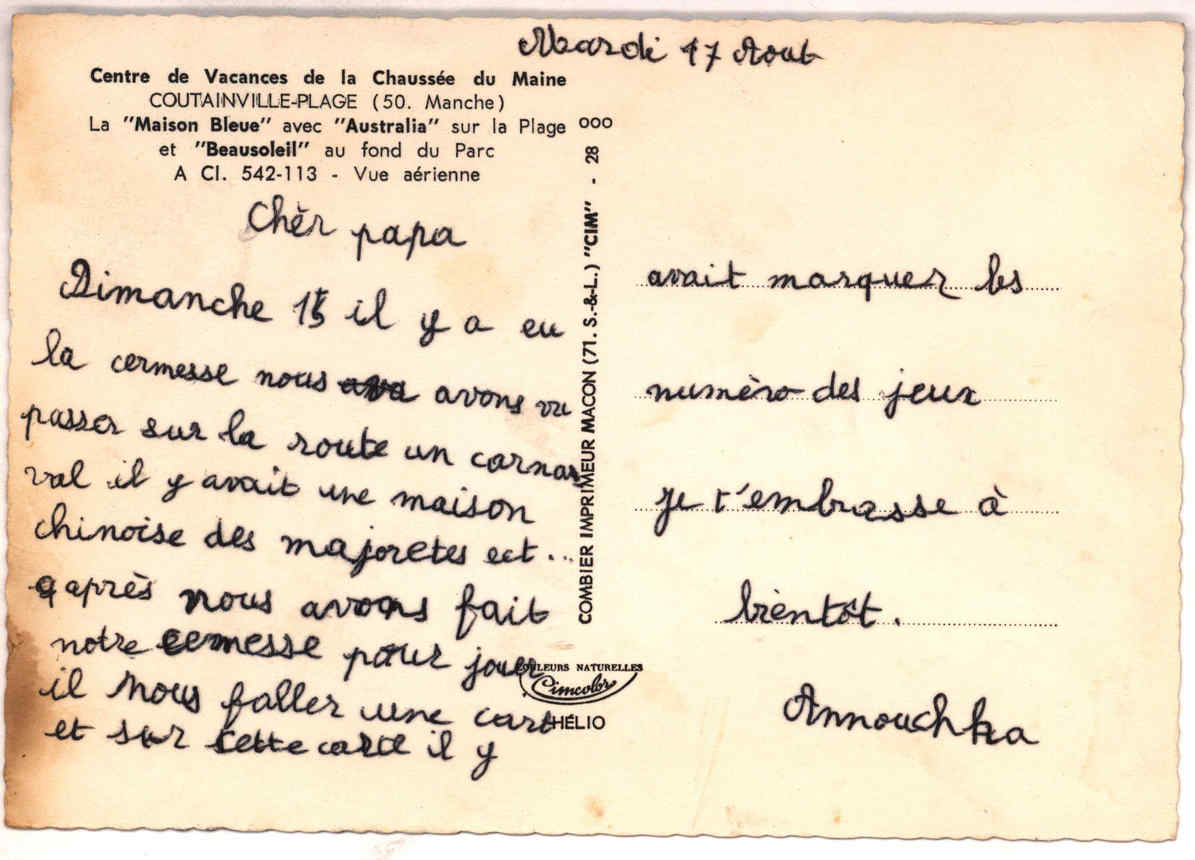 Mardi 17 Aout
Centre de Vacances de la Chaussée du Maine
COUTAINVILLE-PLAGE (50. Manche)
La "Maison Bleue" avec "Australia" sur la Plage
et "Beausoleil" au fond du Parc
A Cl. 542-113 - Vue aérienne
Chèr papa
Dimanche 15 il y a eu
la cermesse nous ava avons vu
passer sur la route un carna
val il y avait une maison
chinoise des majoretes ect...
a après nous avons fait
notre cemesse pour jouer
il nous faller une cart
et sur cette carte il y
COMBIER IMPRIMEUR MACON (71. S.-&-L.) "CIM" - 28 ooo
COULEURS NATURELLES
Cimcolor
HÉLIO
avait marquer les
numèro des jeux
je t'embrasse à
bientôt.
Annouchka